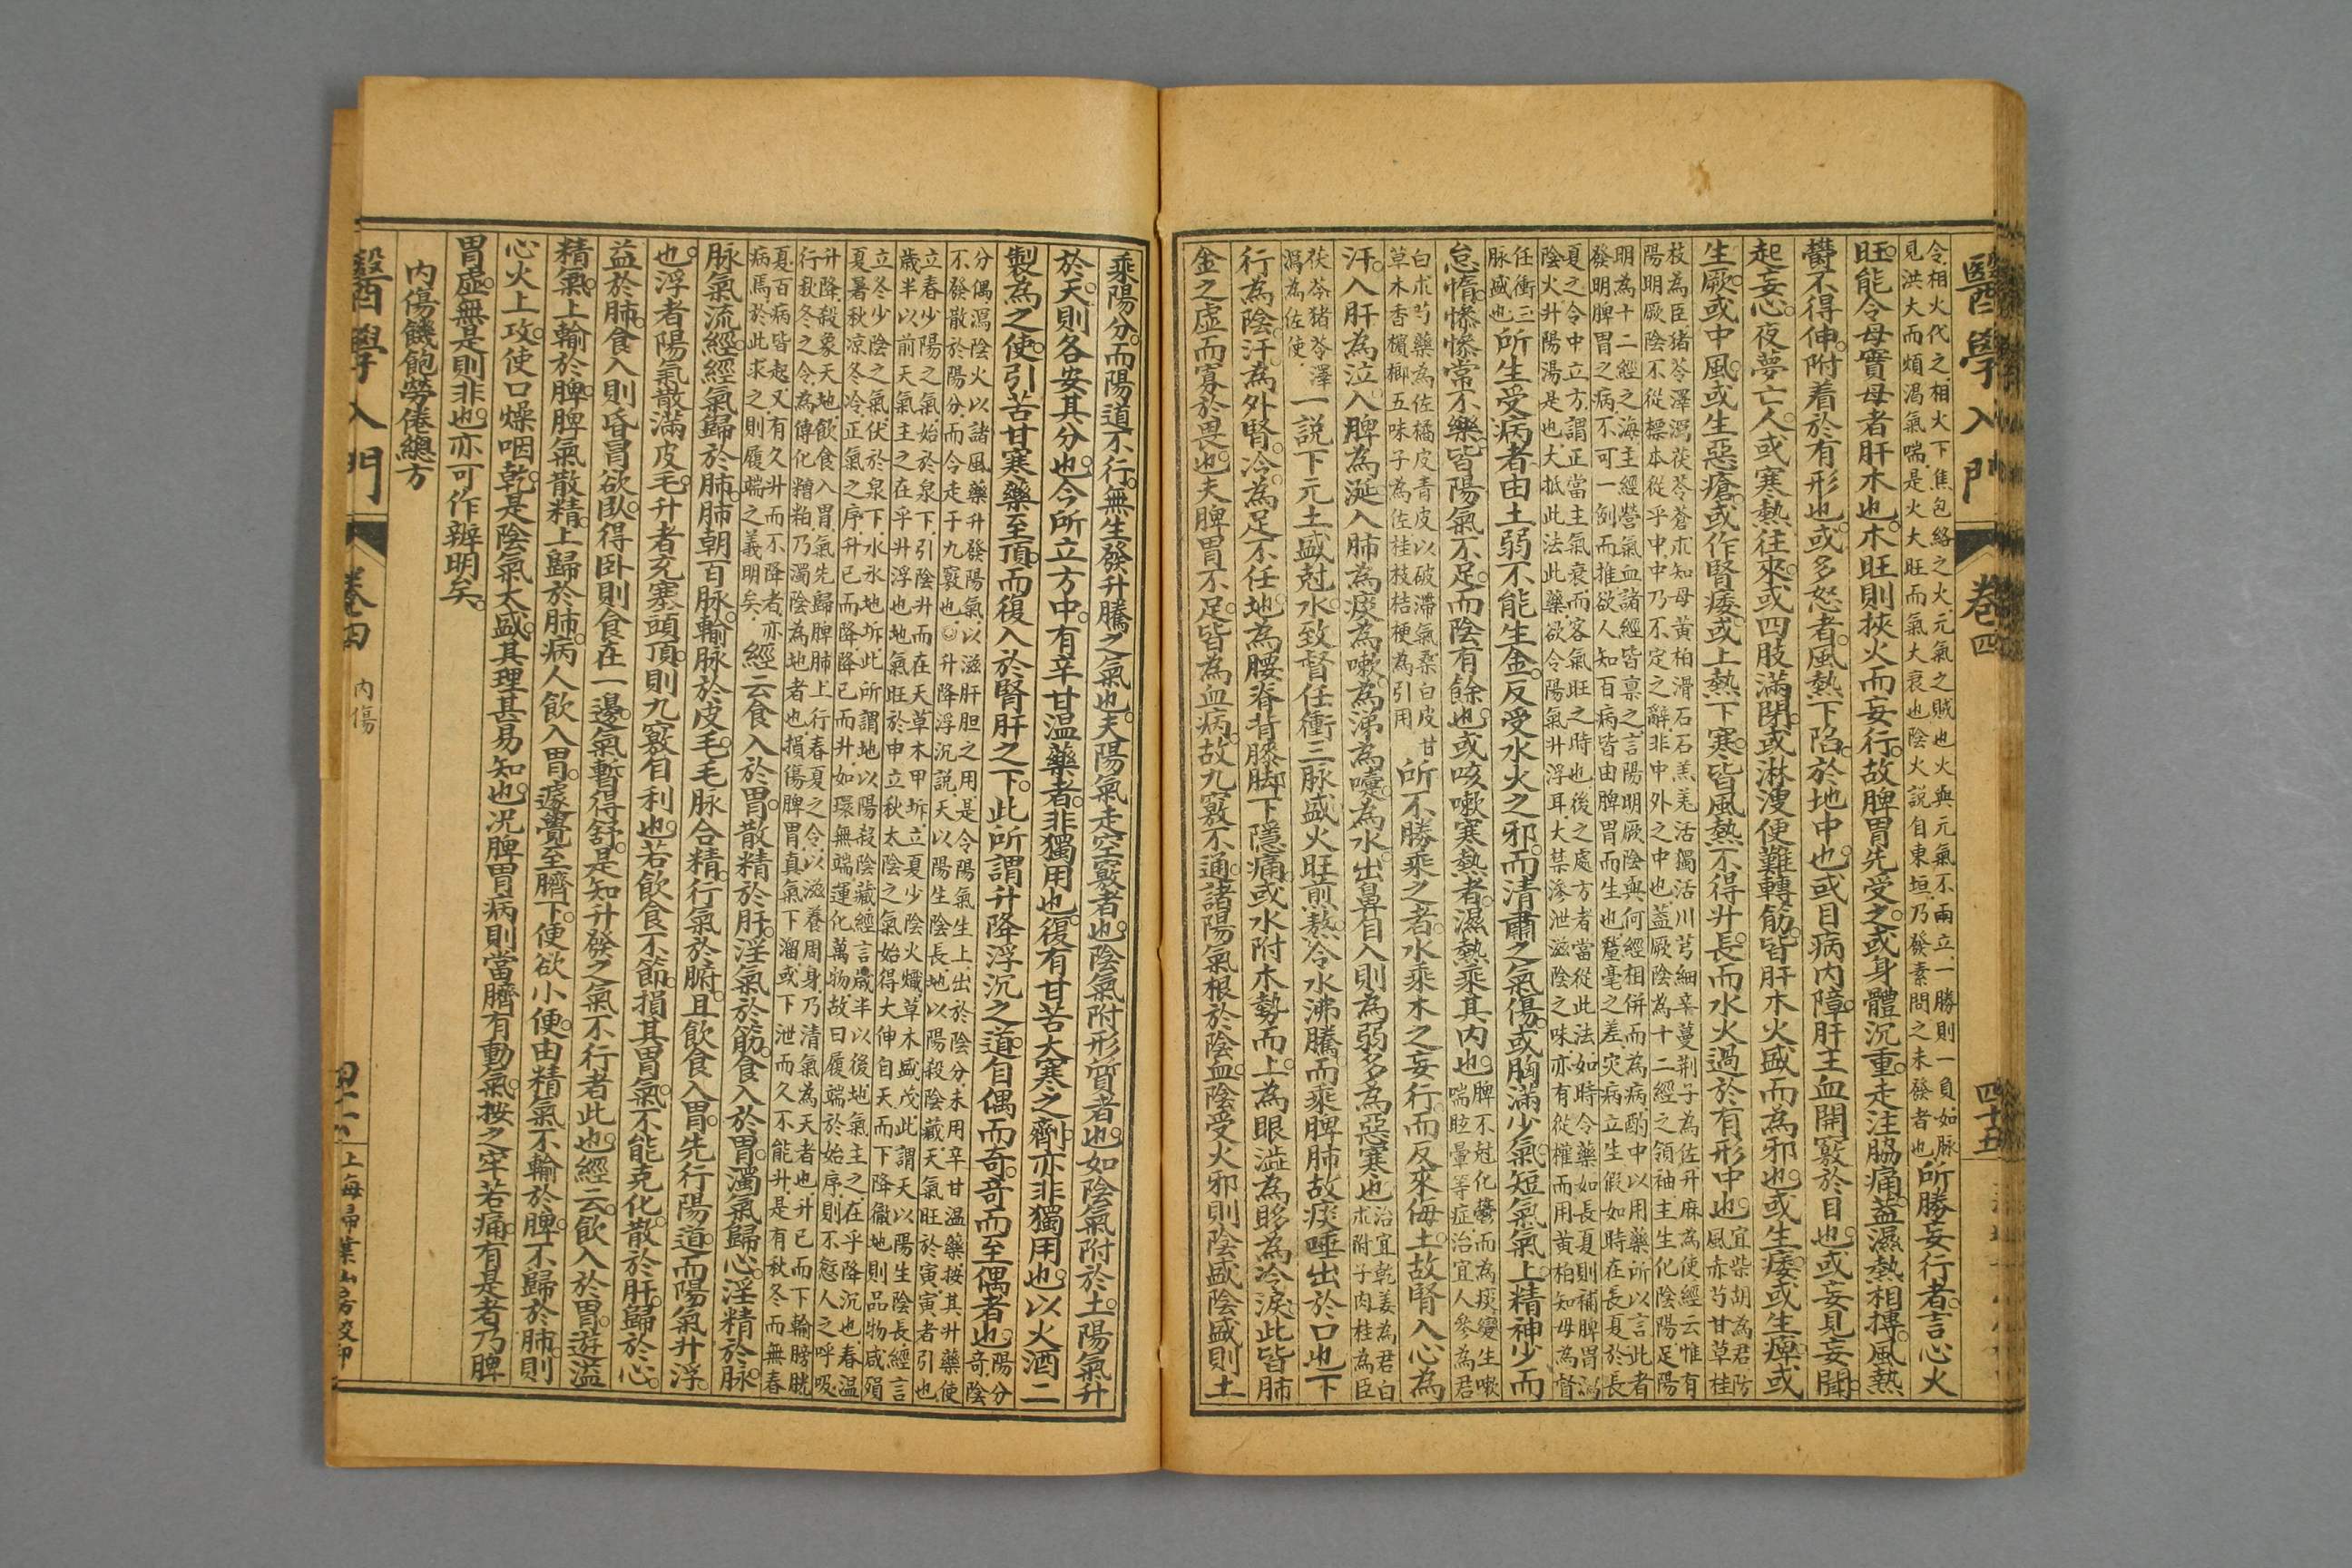 醫學入門 卷四 四十五
令相火代之相火下焦包絡之火元氣之賊也火與元氣不兩立一勝則一負如脉
見洪大而煩渴氣喘是火大旺而氣大衰也陰火説自東垣乃發素問之未發者也
所勝妄行者言心火
旺能令母實母者肝木也木旺則挾火而妄行故脾胃先受之或身體沉重走注脇痛蓋濕熱相搏風熱
鬱不得伸附着於有形也或多怒者風熱下陷於地中也或目病内障肝主血開竅於目也或妄見妄聞
起妄心夜夢亡人或寒熱往來或四肢滿閉或淋溲便難轉筋皆肝木火盛而為邪也或生痿或生痺或
生厥或中風或生惡瘡或作腎痿或上熱下寒皆風熱不得升長而水火過於有形中也
宜柴胡為君防
風赤芍甘草桂
枝為臣猪苓澤瀉茯苓蒼朮知母黄柏滑石石羔羌活獨活川芎細辛蔓荆子為佐升麻為使經云惟有
陽明厥陰不從標本從乎中中乃不定之辭非中外之中也蓋厥陰為十二經之領袖主生化陰陽足陽
明為十二經之海主經營氣血諸經皆禀之言陽明厥陰與何經相併而為病酌中以用藥所以言此者
發明脾胃之病不可一例而推欲人知百病皆由脾胃而生也釐毫之差灾病立生假如時在長夏於長
夏之令中立方謂正當主氣衰而客氣旺之時也後之處方者當從此法如時令藥如長夏則補脾胃瀉
陰火升陽湯是也大抵此法此藥欲令陽氣升浮耳大禁滲泄滋陰之味亦有從權而用黄柏知母為督
任衝三
脉盛也
所生受病者由土弱不能生金反受水火之邪而清肅之氣傷或胸滿少氣短氣氣上精神少而
怠惰慘慘常不樂皆陽氣不足而陰有餘也或咳嗽寒熱者濕熱乘其内也
脾不尅化鬱而為痰變生嗽
喘眩暈等症治宜人參為君
白朮芍藥為佐橘皮青皮以破滯氣桑白皮甘
草木香檳榔五味子為佐桂枝桔梗為引用
所不勝乘之者水乘木之妄行而反來侮土故腎入心為
汗入肝為泣入脾為涎入肺為痰為嗽為涕為嚏為水出鼻目入則為弱多為惡寒也
治宜乾姜為君白
朮附子肉桂為臣
茯苓猪苓澤
瀉為佐使
一説下元土盛尅水致督任衝三脉盛火旺煎熬冷水沸騰而乘脾肺故痰唾出於口也下
行為陰汗為外腎冷為足不任地為腰脊背膝脚下隱痛或水附木勢而上為眼澁為眵為冷淚此皆肺
金之虚而寡於畏也夫脾胃不足皆為血病故九竅不通諸陽氣根於陰血陰受火邪則陰盛陰盛則土
乘陽分而陽道不行無生發升騰之氣也夫陽氣走空竅者也陰氣附形質者也如陰氣附於土陽氣升
於天則各安其分也今所立方中有辛甘温藥者非獨用也復有甘苦大寒之劑亦非獨用也以火酒二
製為之使引苦甘寒藥至頂而復入於腎肝之下此所謂升降浮沉之道自偶而奇奇而至偶者也
陽分
奇陰
分偶瀉陰火以諸風藥升發陽氣以滋肝胆之用是令陽氣生上出於陰分末用辛甘温藥按其升藥使
不發散於陽分而令走于九竅也○升降浮沉説天以陽生陰長地以陽殺陰藏天氣旺於寅寅者引也
立春少陽之氣始於泉下引陰升而在天草木甲坼立夏少陰火熾草木盛茂此謂天以陽生陰長經言
歲半以前天氣主之在乎升浮也地氣旺於申立秋太陰之氣始得大伸自天而下降徹地則品物咸殞
立冬少陰之氣伏於泉下水氷地坼此所謂地以陽殺陰藏經言歲半以後地氣主之在乎降沉也春温
夏暑秋凉冬冷正氣之序升已而降降已而升如環無端運化萬物故曰履端於始序則不愆人之呼吸
升降殺象天地飲食入胃氣先歸脾肺上行春夏之令以滋養周身乃清氣為天者也升已而下輸膀胱
行秋冬之令為傳化糟粕乃濁陰為地者也損傷脾胃真氣下溜或下泄而久不能升是有秋冬而無春
夏百病皆起又有久升而不降者亦
病焉於此求之則履端之義明矣
經云食入於胃散精於肝淫氣於筋食入於胃濁氣歸心淫精於脉
脉氣流經經氣歸於肺肺朝百脉輸脉於皮毛毛脉合精行氣於腑且飲食入胃先行陽道而陽氣升浮
也浮者陽氣散滿皮毛升者充塞頭頂則九竅自利也若飲食不節損其胃氣不能克化散於肝歸於心
益於肺食入則昏冒欲臥得卧則食在一邊氣暫得舒是知升發之氣不行者此也經云飲入於胃遊溢
精氣上輸於脾脾氣散精上歸於肺病人飲入胃遽覺至臍下便欲小便由精氣不輸於脾不歸於肺則
心火上攻使口燥咽乾是陰氣大盛其理甚易知也况脾胃病則當臍有動氣按之牢若痛有是者乃脾
胃虚無是則非也亦可作辨明矣
内傷饑飽勞倦總方
醫學入門 卷四 内傷 上海掃葉山房校印